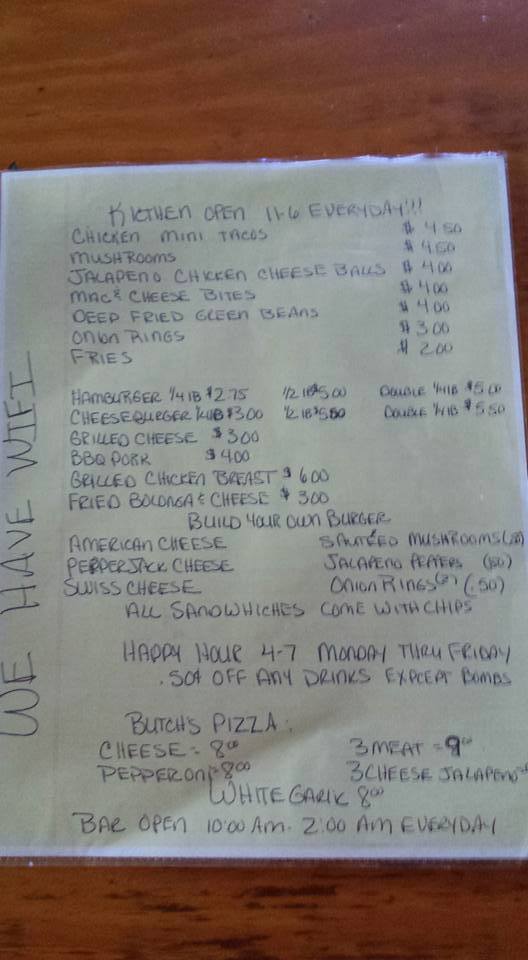 KICTHEN OPEN 11-6 EVERYDAY!!!
CHICKEN MINI TACOS $4.50
MUSHROOMS $4.50
JALAPENO CHICKEN CHEESE BALLS $4.00
MAC & CHEESE BITES $4.00
DEEP FRIED GREEN BEANS $4.00
ONION RINGS $3.00
FRIES $2.00
HAMBURGER 1/4 lB $2.75 1/2 lB $5.00 DOUBLE 1/4 lB $5.00
CHEESEBURGER 1/4 lB $3.00 1/2 lB $5.50 DOUBLE 1/4 lB $5.50
GRILLED CHEESE $3.00
BBQ PORK $4.00
GRILLED CHICKEN BREAST $6.00
FRIED BOLONGA & CHEESE $3.00
BUILD YOUR OWN BURGER
AMERICAN CHEESE SAUTEED MUSHROOMS
PEPPERJACK CHEESE JALAPENO PEPPERS (.50)
SWISS CHEESE ONION RINGS (2) (.50)
ALL SANDWHICHES COME WITH CHIPS
HAPPY HOUR 4-7 MONDAY THRU FRIDAY
.50¢ OFF ANY DRINKS EXPCEPT BOMBS
BUTCH'S PIZZA:
CHEESE = 8.00 3 MEAT = 9.00
PEPPERONI = 8.00 3 CHEESE JALAPENO
WHITE GARIK 8.00
BAR OPEN 10:00 AM - 2:00 AM EVERYDAY
WE HAVE WIFI